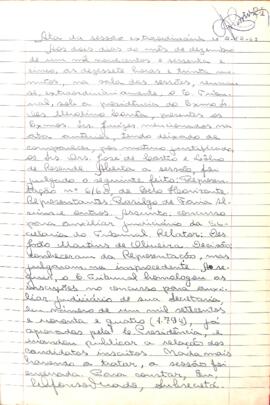 Ata da sessão extraordinária
Aos dois dias do mês de dezembro
de um mil novecentos e sessenta e
cinco, as dezessete horas e trinta mi-
nutos, na sala das sessões, reuniu-
se, extraordinariamente, o E. Tribu-
nal, sob a presidência do Exmo.
Des. presentes os
Exmos. Srs. Juízes mencionados na
ata anterior, tendo deixado de
comparecer, por motivo justificado,
os Srs. Drs. José de Castro e
de Resende. Aberta a sessão, foi
julgado o seguinte feito: Represen-
tação nº 6/65, de Belo Horizonte.
Representantes: Rodrigo de Faria
e outros. Assunto: concurso
para auxiliar judiciário da Se-
cretaria do Tribunal. Relator: Des.
João Martins de Oliveira. Decisão:
Conheceram da Representação, mas
julgaram-na improcedente. A se-
guir, o E. Tribunal homologou as
inscrições no concurso para auxi-
liar judiciário de sua Secretaria,
em número de um mil setecentos
e noventa e quatro (1.794), já
aprovadas pela E. Presidência, e
mandou publicar a relação dos
candidatos inscritos. Nada mais
havendo a tratar, a sessão foi
encerrada. Para constar, eu,